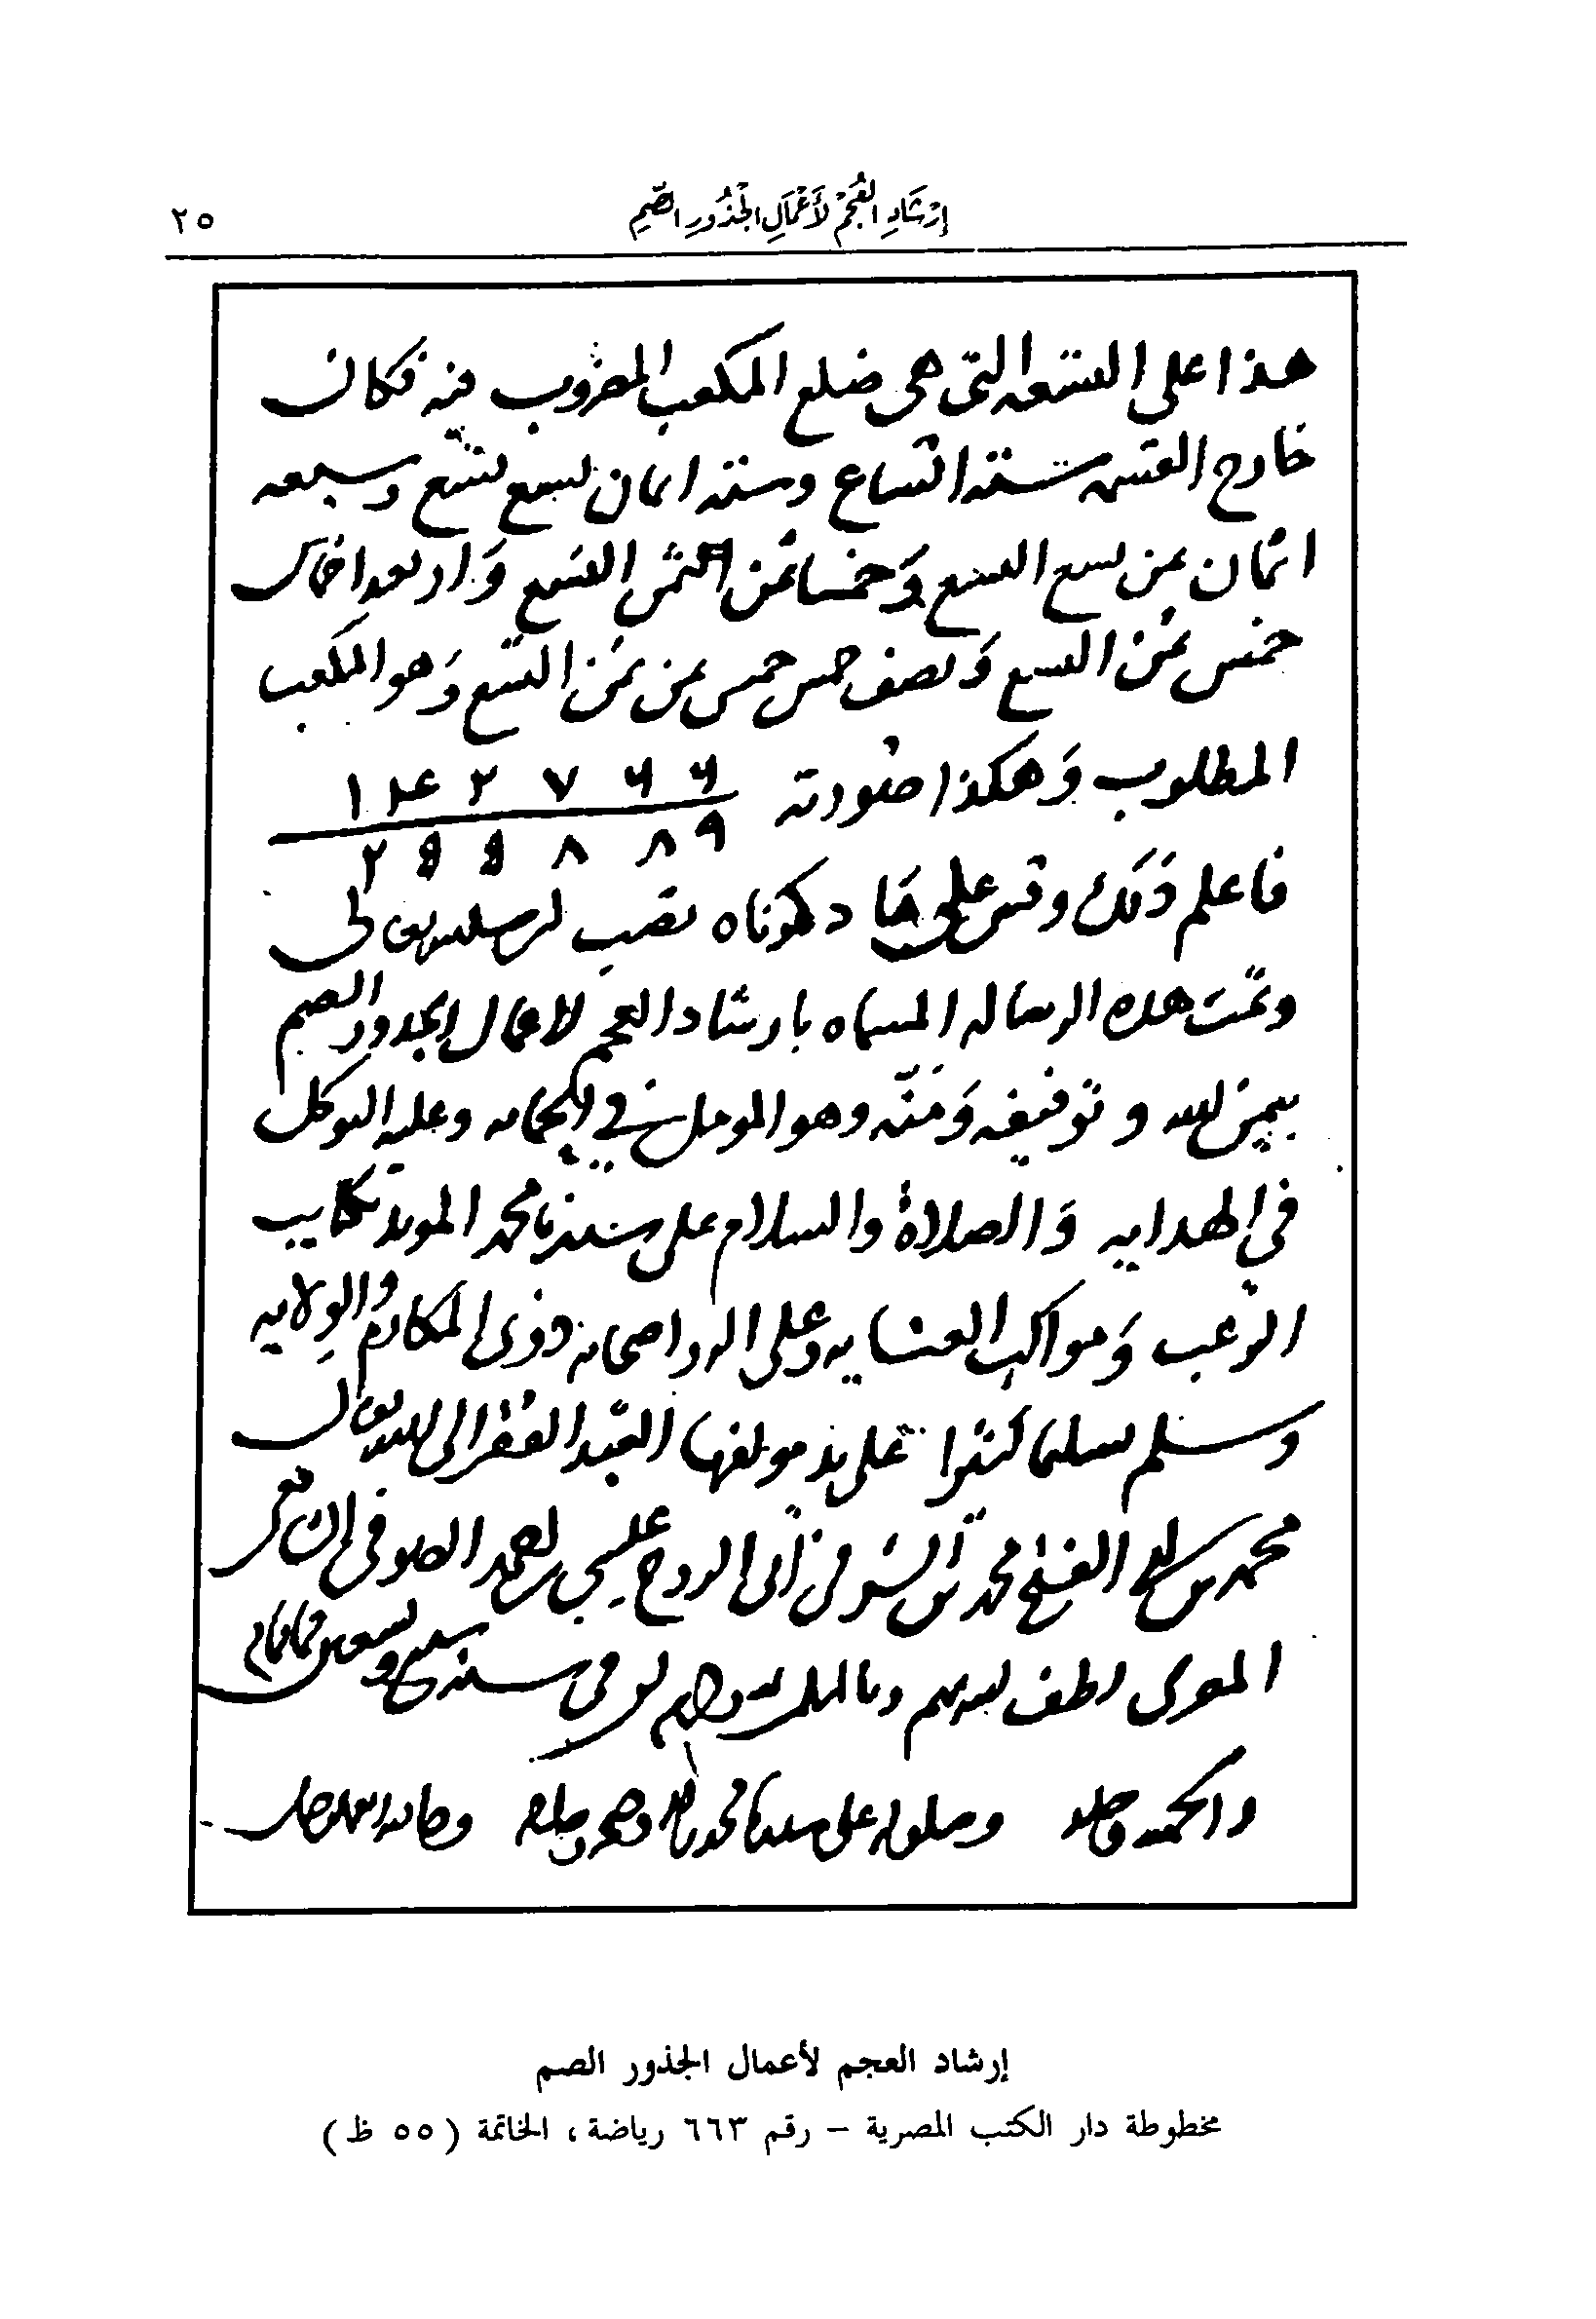 إِرْشَادِ العَجَمْ لأَعْمَالِ الجُذُورِ الصُّمِ
٢٥
هذا على التسعه التى هى ضلع المكعب المضروب فيه فكان
خارج القسمه ستة اتساع وستة اثمان تسع تسع وسبعه
اثمان ثمن تسع التسع وَخمسا ثمن الثمن التسع وَاربعه اخماس
خمس ثمن التسع وَنصف خمس خمس ثمن ثمن التسع وَهو المكعب
المطلوب وَهكذا صورته
فاعلم ذلك وقس على ما ذكرناه تصب
وتمت هذه الرساله المسماه بارشاد العجم لاعمال الجذور الصم
بيمن الله وتوفيقه وَمنّه وهو فى وعليه التوكل
فى الهدايه وَالصلاة والسلام على سيدنا محمد المويد بكتايب
الرعب وَمواكب العنايه وعلى اله واصحابه ذوى المكارم والولايه
وسلم تسليما كثيرا على يد مولفها العبد الفقير الى الله تعالى
محمد بن ابى الفتح محمد بن الشرفى ابى الروح عيسى بن احمد الصوفى
لطف الله بهم فى سنه
والحمد لله وحده وصلواته على سيدنا محمد واله وصحبه وسلامه
إرشاد العجم لأعمال الجذور الصم
مخطوطة دار الكتب المصرية – رقم ٦٦٣ رياضة، الخاتمة (٥٥ ظ)